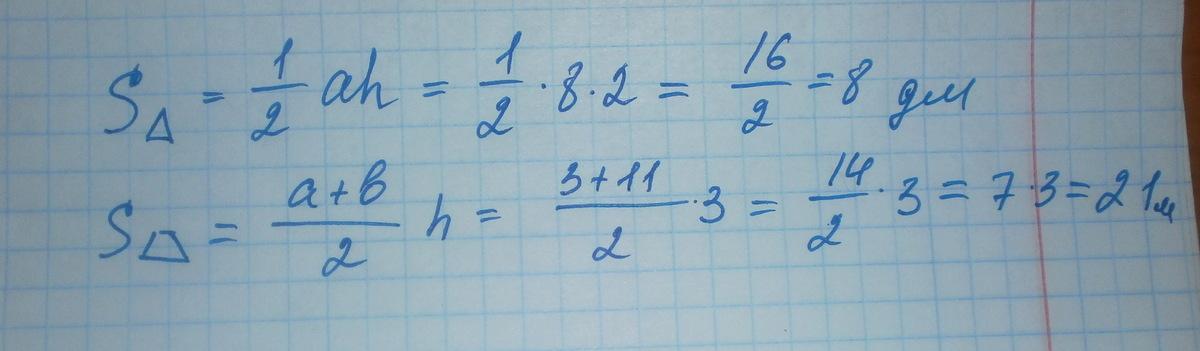 S△ = 1/2 ah = 1/2 · 8 · 2 = 16/2 = 8 дм
S⏢ = a+b/2 h = 3+11/2 · 3 = 14/2 · 3 = 7 · 3 = 21м